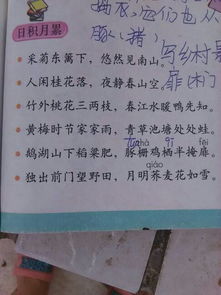 两衣，它们也从
豚（猪）
写乡村景
日积月累
扉（门
采菊东篱下，悠然见南山。
人闲桂花落，夜静春山空。
竹外桃花三两枝，春江水暖鸭先知。
黄梅时节家家雨，青草池塘处处蛙。
tún zhà qī fēi
鹅湖山下稻粱肥，豚栅鸡栖半掩扉。
qiáo
独出前门望野田，月明荞麦花如雪。